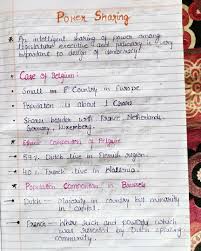 Power Sharing
→ An intelligent sharing of power among
legislature, executive and judiciary is very
important to design of democracy.
Case of Belgium:
Small Country in Europe
Population is about 1 Crore
Shares border with France, Netherlands,
Germany, Luxemberg.
Ethnic Composition of Belgium
59% Dutch live in Flemish region.
40% French live in Wallonia.
Population Composition in Brussels
Dutch – Majority in country but minority
in Capital.
French – were rich and powerful which
was resented by Dutch speaking
community.